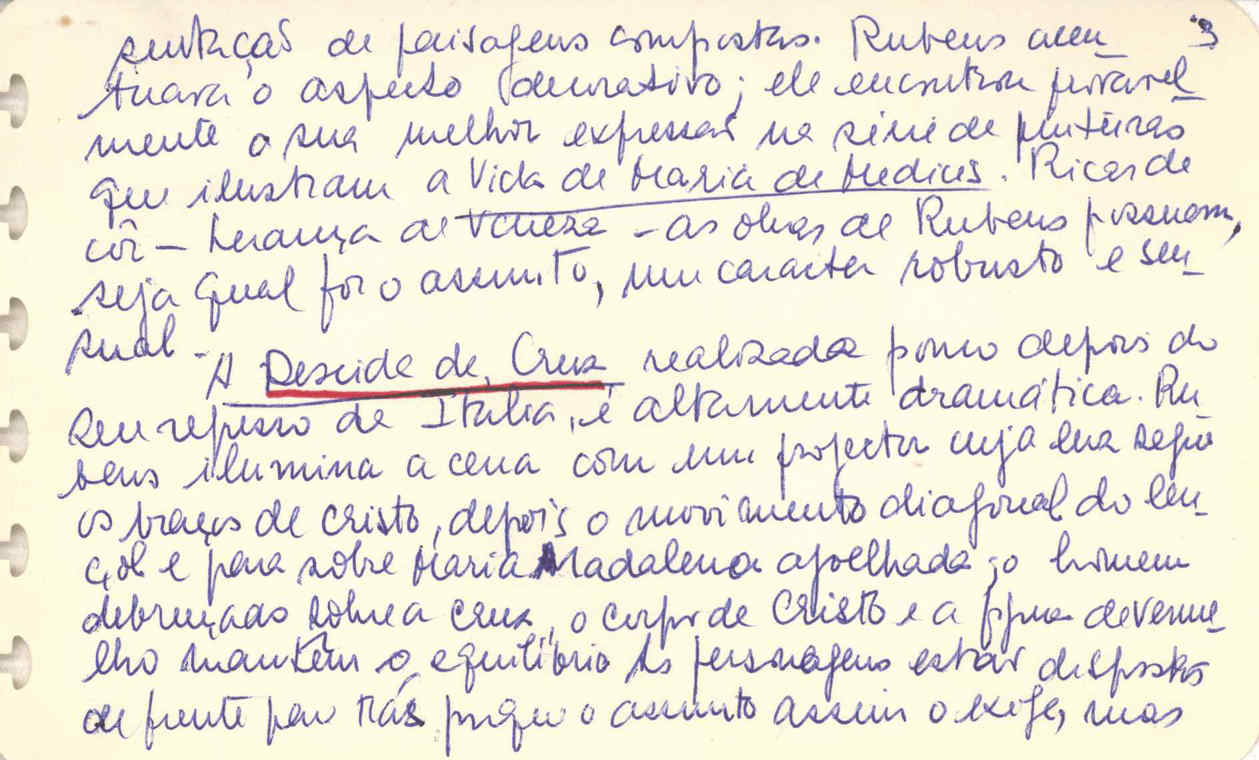 sentação de paisagens compostas. Rubens acen_ 3
tuara o aspecto decorativo; ele encontrou provavel_
mente a sua melhor expressão na série de pinturas
que ilustram a Vida de Maria de Medicis. Ricas de
côr - herança de Veneza - as obras de Rubens possuem,
seja qual for o assunto, um caracter robusto e sen_
sual.
A Descida da Cruz realizada pouco depois do
seu regresso de Italia, é altamente dramática. Ru
bens ilumina a cena com um projector cuja luz segue
os braços de Cristo, depois o movimento diagonal do len_
çol e para sobre Maria Madalena ajoelhada; o homem
debruçado sobre a cruz, o corpo de Cristo e a figura de verme_
lho mantêm o equilíbrio. As personagens estão dispostas
de frente para trás porque o assunto assim o exige, mas